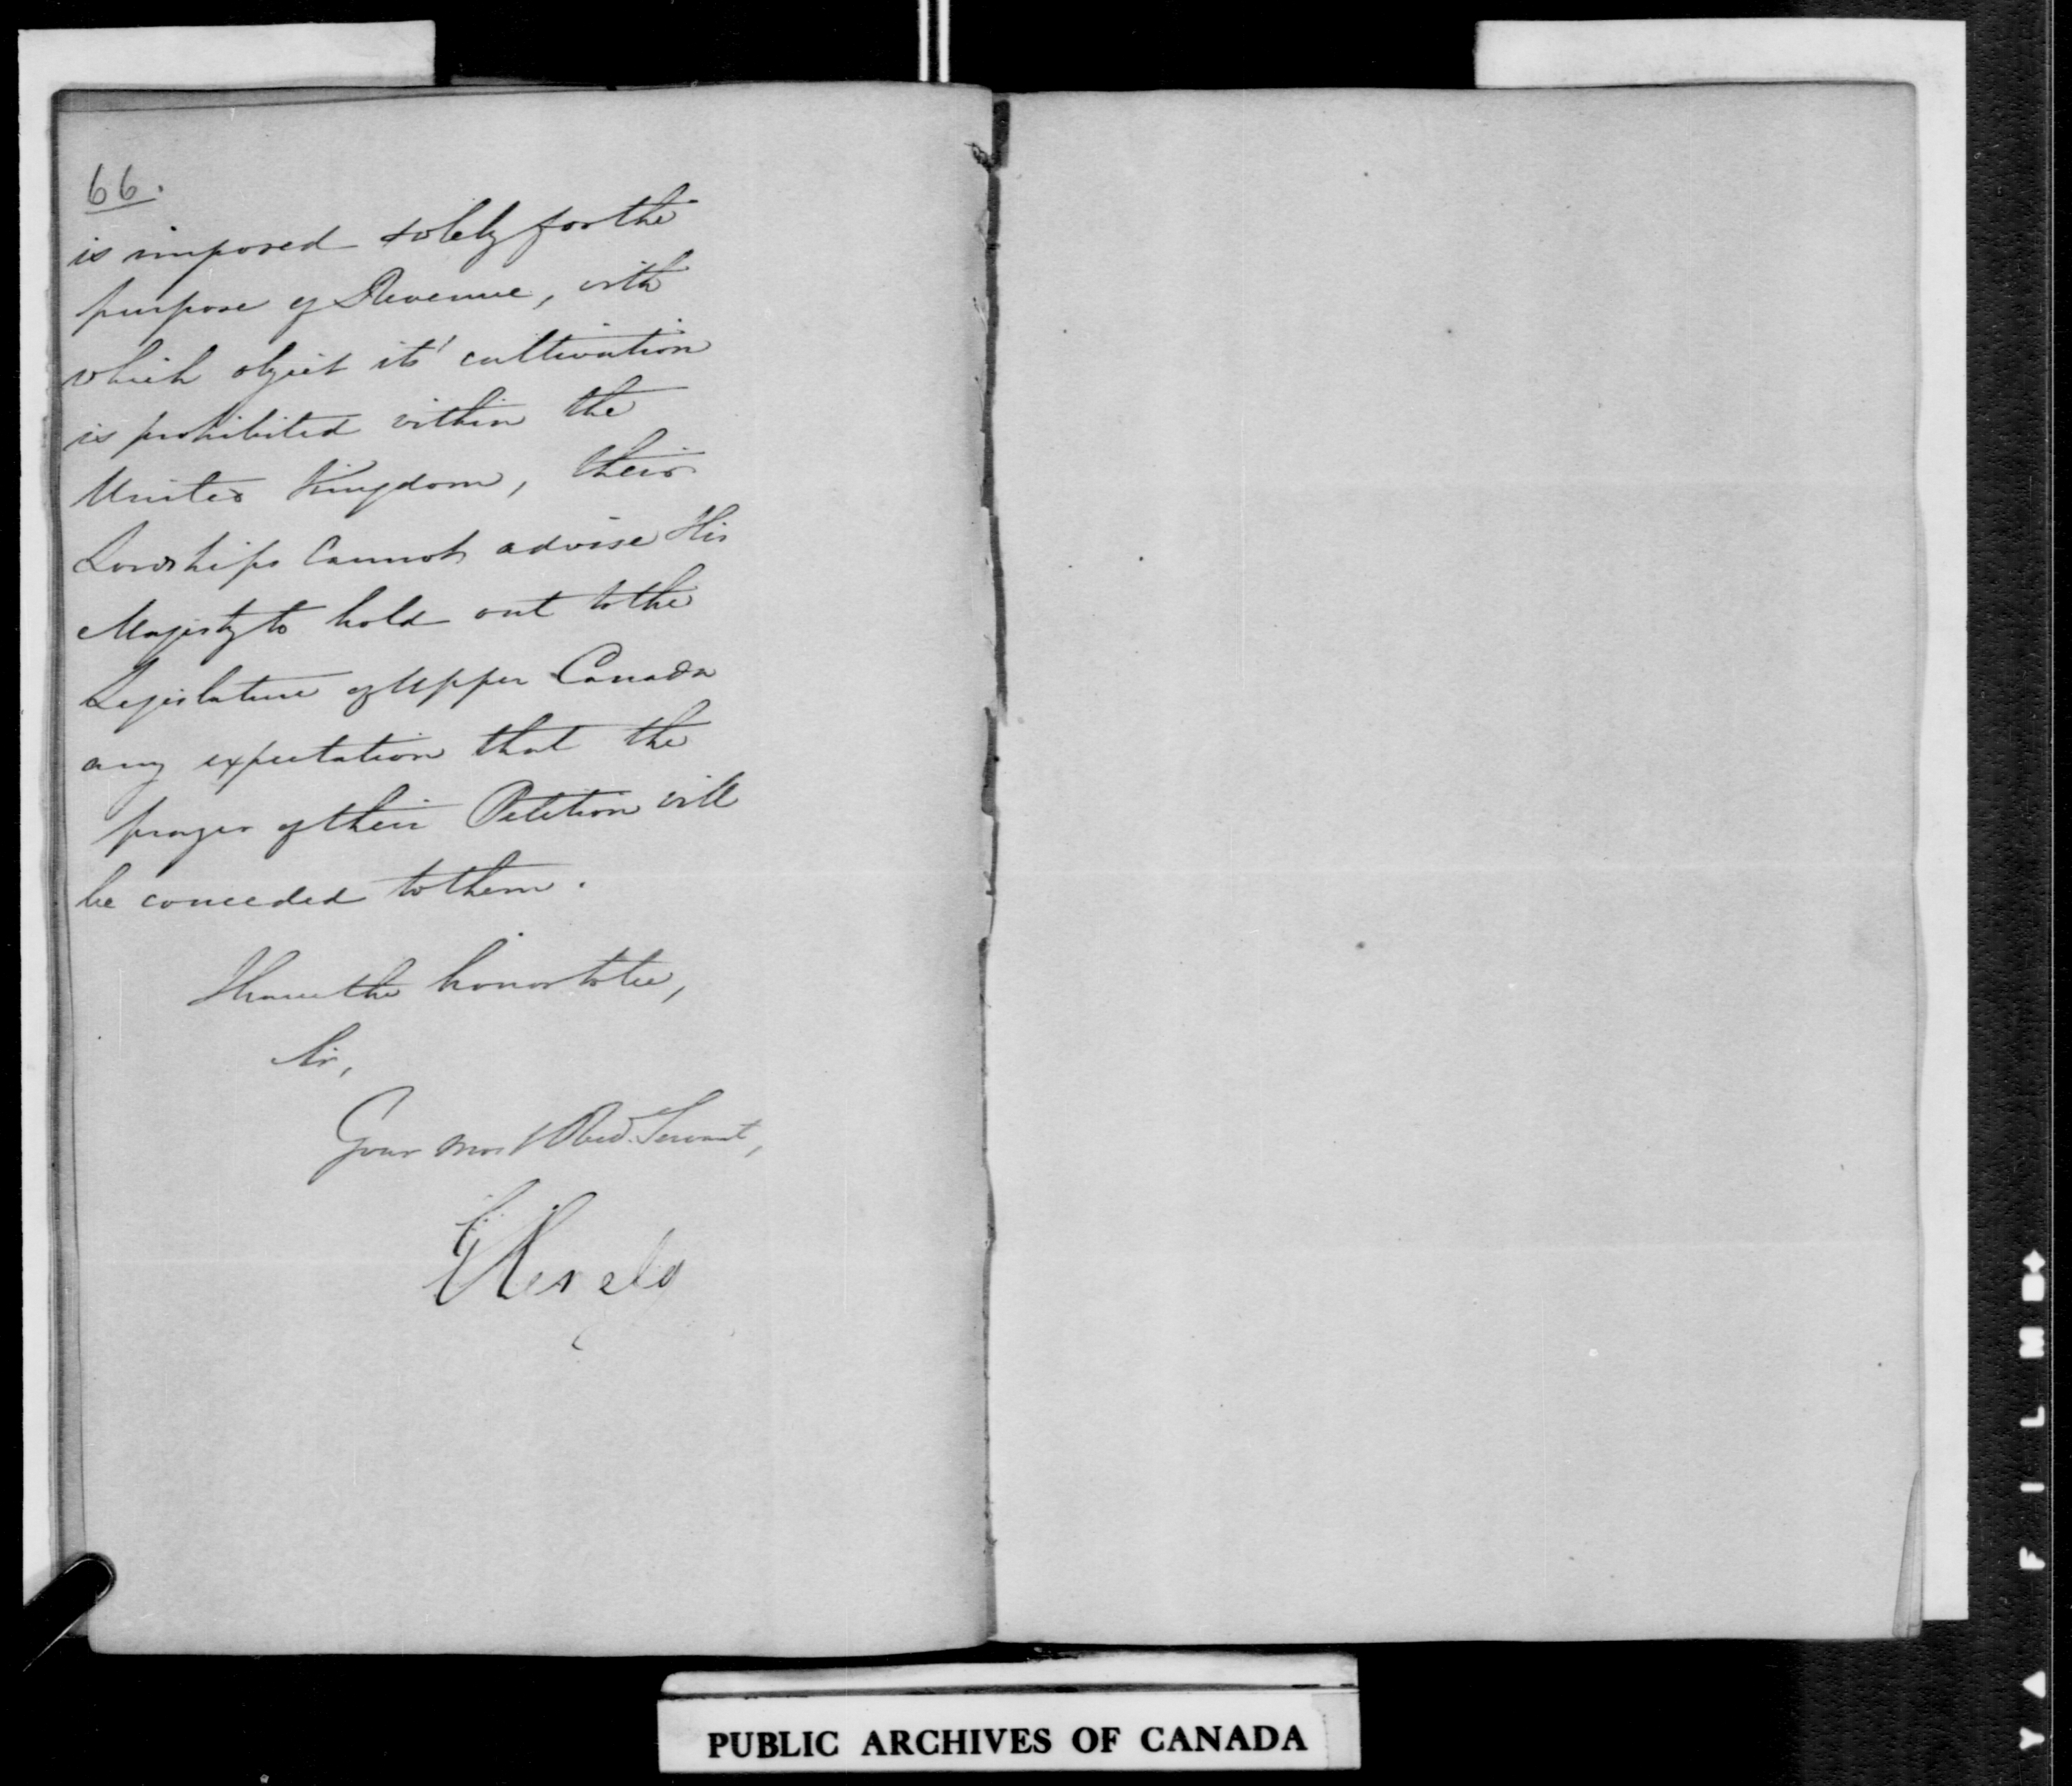 66.
is imposed solely for the
purpose of Revenue, with
which object its' cultivation
is prohibited within the
United Kingdom, their
Lordships cannot advise His
Majesty to hold out to the
Legislature of Upper Canada
any expectation that the
prayer of their Petition will
be conceded to them.
I have the honor to be,
Sir,
Your most Obed. Servant,
Glenelg
PUBLIC ARCHIVES OF CANADA
Y A F I L M